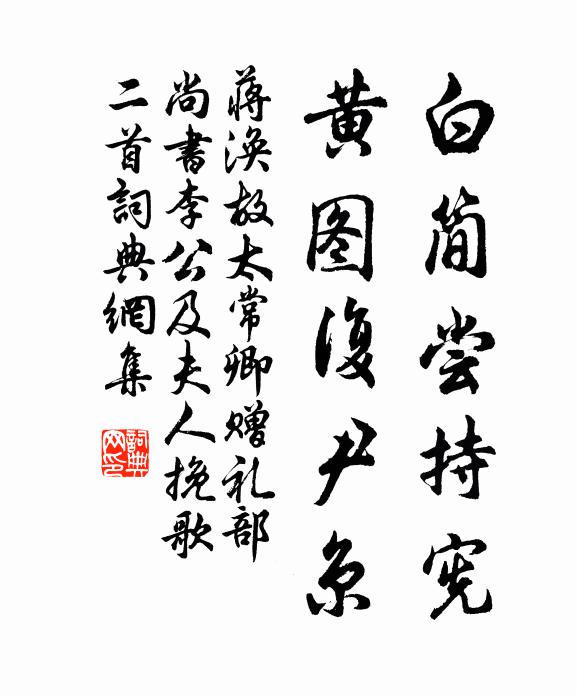 白简尝持宪
黄图复尹京
蒋涣故太常卿赠礼部
尚書李公及夫人挽歌
二首詞典網集
詞典
网印